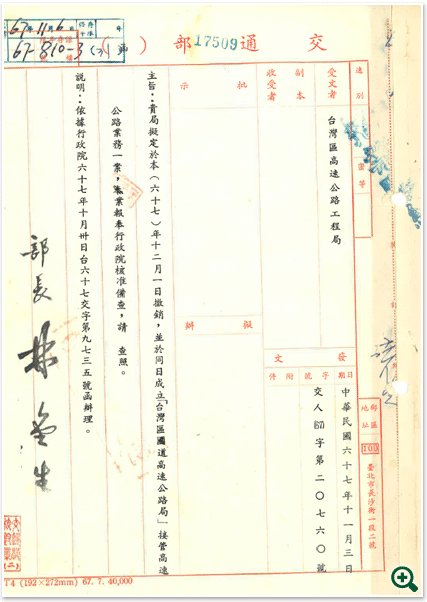 交通部(
)
17509
67年11月6日
67-810-3(
速別
密等
受文者
台灣區高速公路工程局
副本
收受者
批示
擬辦
發文
日期
字號
附件
中華民國六十七年十一月三日
交人(67)字第二〇七六〇號
郵區
100
地址
臺北市長沙街一段二號
主旨:貴局擬定於本(六十七)年十二月一日撤銷,並於同日成立「台灣區國道高速公路局」接管高速
公路業務一案,業報奉行政院核准備查,請 查照。
說明:依據行政院六十七年十月卅日台六十七交字第九七三五號函辦理。
部長 林金生
(二)
T4 (192×272mm) 67. 7. 40,000